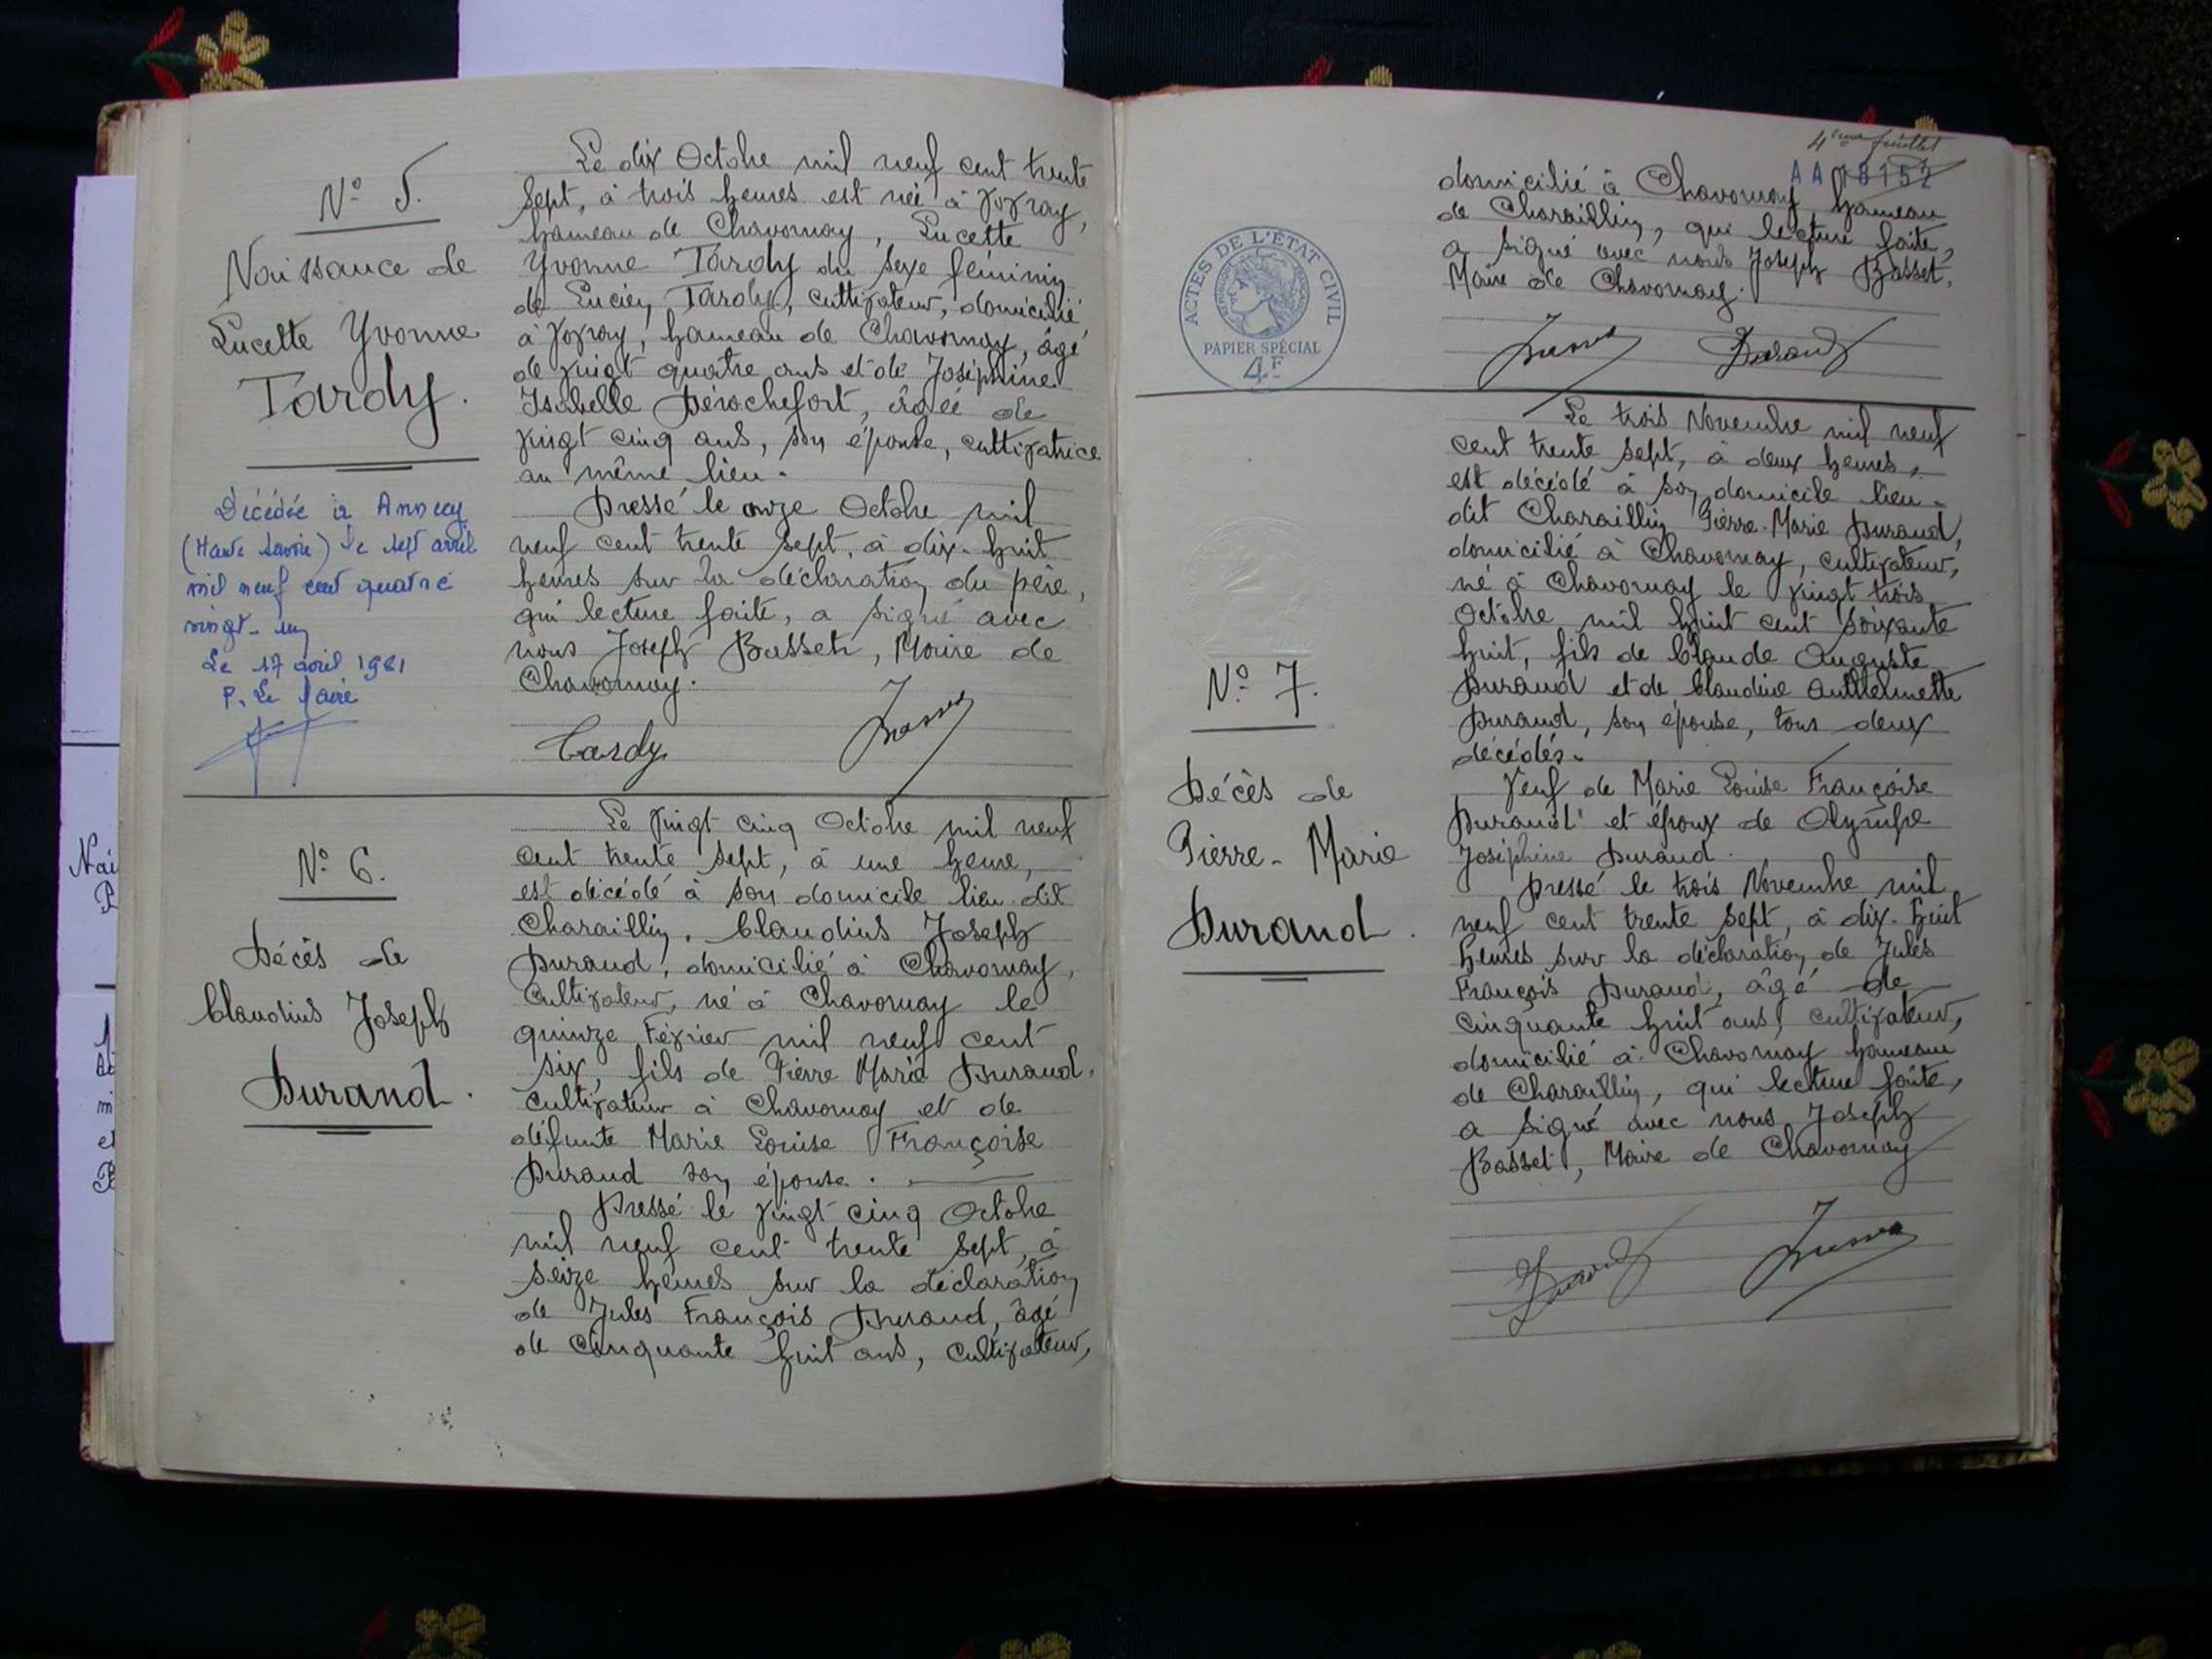 N° 5.
Naissance de
Lucette Yvonne
Tardy.
Décédée à Annecy
(Haute Savoie) le sept avril
mil neuf cent quatre
vingt-un
Le 17 avril 1981
P. Le Maire
Le dix Octobre mil neuf cent trente
sept, à trois heures est née à Vovray,
hameau de Chavornay, Lucette
Yvonne Tardy du sexe féminin
de Lucien Tardy, cultivateur, domicilié
à Vovray, hameau de Chavornay, âgé
de vingt quatre ans et de Joséphine
Isabelle Dérochefort, âgée de
vingt cinq ans, son épouse, cultivatrice
au même lieu.
Dressé le onze Octobre mil
neuf cent trente sept, à dix-huit
heures sur la déclaration du père,
qui lecture faite, a signé avec
nous Joseph Basset, Maire de
Chavornay.
Tardy
N° 6.
Décès de
Claudius Joseph
Durand.
Le vingt cinq Octobre mil neuf
cent trente sept, à une heure,
est décédé à son domicile lieu dit
Charaillin, Claudius Joseph
Durand, domicilié à Chavornay,
cultivateur, né à Chavornay le
quinze Février mil neuf cent
six, fils de Pierre Marie Durand,
cultivateur à Chavornay et de
défunte Marie Louise Françoise
Durand son épouse.
Dressé le vingt cinq Octobre
mil neuf cent trente sept, à
seize heures sur la déclaration
de Jules François Durand, âgé
de cinquante huit ans, cultivateur,
4ème feuillet
AA 18152
domicilié à Chavornay hameau
de Charaillin, qui lecture faite,
a signé avec nous Joseph Basset,
Maire de Chavornay.
Basset Durand
ACTES DE L'ÉTAT CIVIL
PAPIER SPÉCIAL
4F
N° 7.
Décès de
Pierre-Marie
Durand.
Le trois Novembre mil neuf
cent trente sept, à deux heures,
est décédé à son domicile lieu-
dit Charaillin Pierre-Marie Durand,
domicilié à Chavornay, cultivateur,
né à Chavornay le vingt trois
Octobre mil huit cent soixante
huit, fils de Claude Auguste
Durand et de Claudine Anthelmette
Durand, son épouse, tous deux
décédés.
Veuf de Marie Louise Françoise
Durand et époux de Olympe
Joséphine Durand.
Dressé le trois Novembre mil
neuf cent trente sept, à dix-huit
heures sur la déclaration de Jules
François Durand, âgé de
cinquante huit ans, cultivateur,
domicilié à Chavornay hameau
de Charaillin, qui lecture faite,
a signé avec nous Joseph
Basset, Maire de Chavornay
Durand Basset